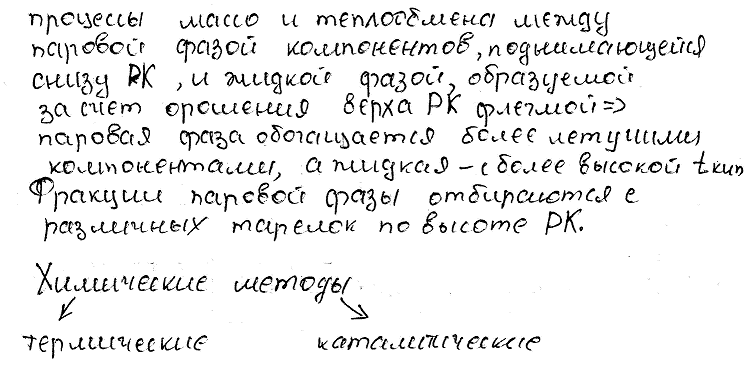 процессы массо и теплообмена между
паровой фазой компонентов, поднимающейся
снизу РК, и жидкой фазой, образуемой
за счет орошения верха РК флегмой =>
паровая фаза обогащается более летучими
компонентами, а жидкая - с более высокой tкип
Фракции паровой фазы отбираются с
различных тарелок по высоте РК.
Химические методы
термические каталитические